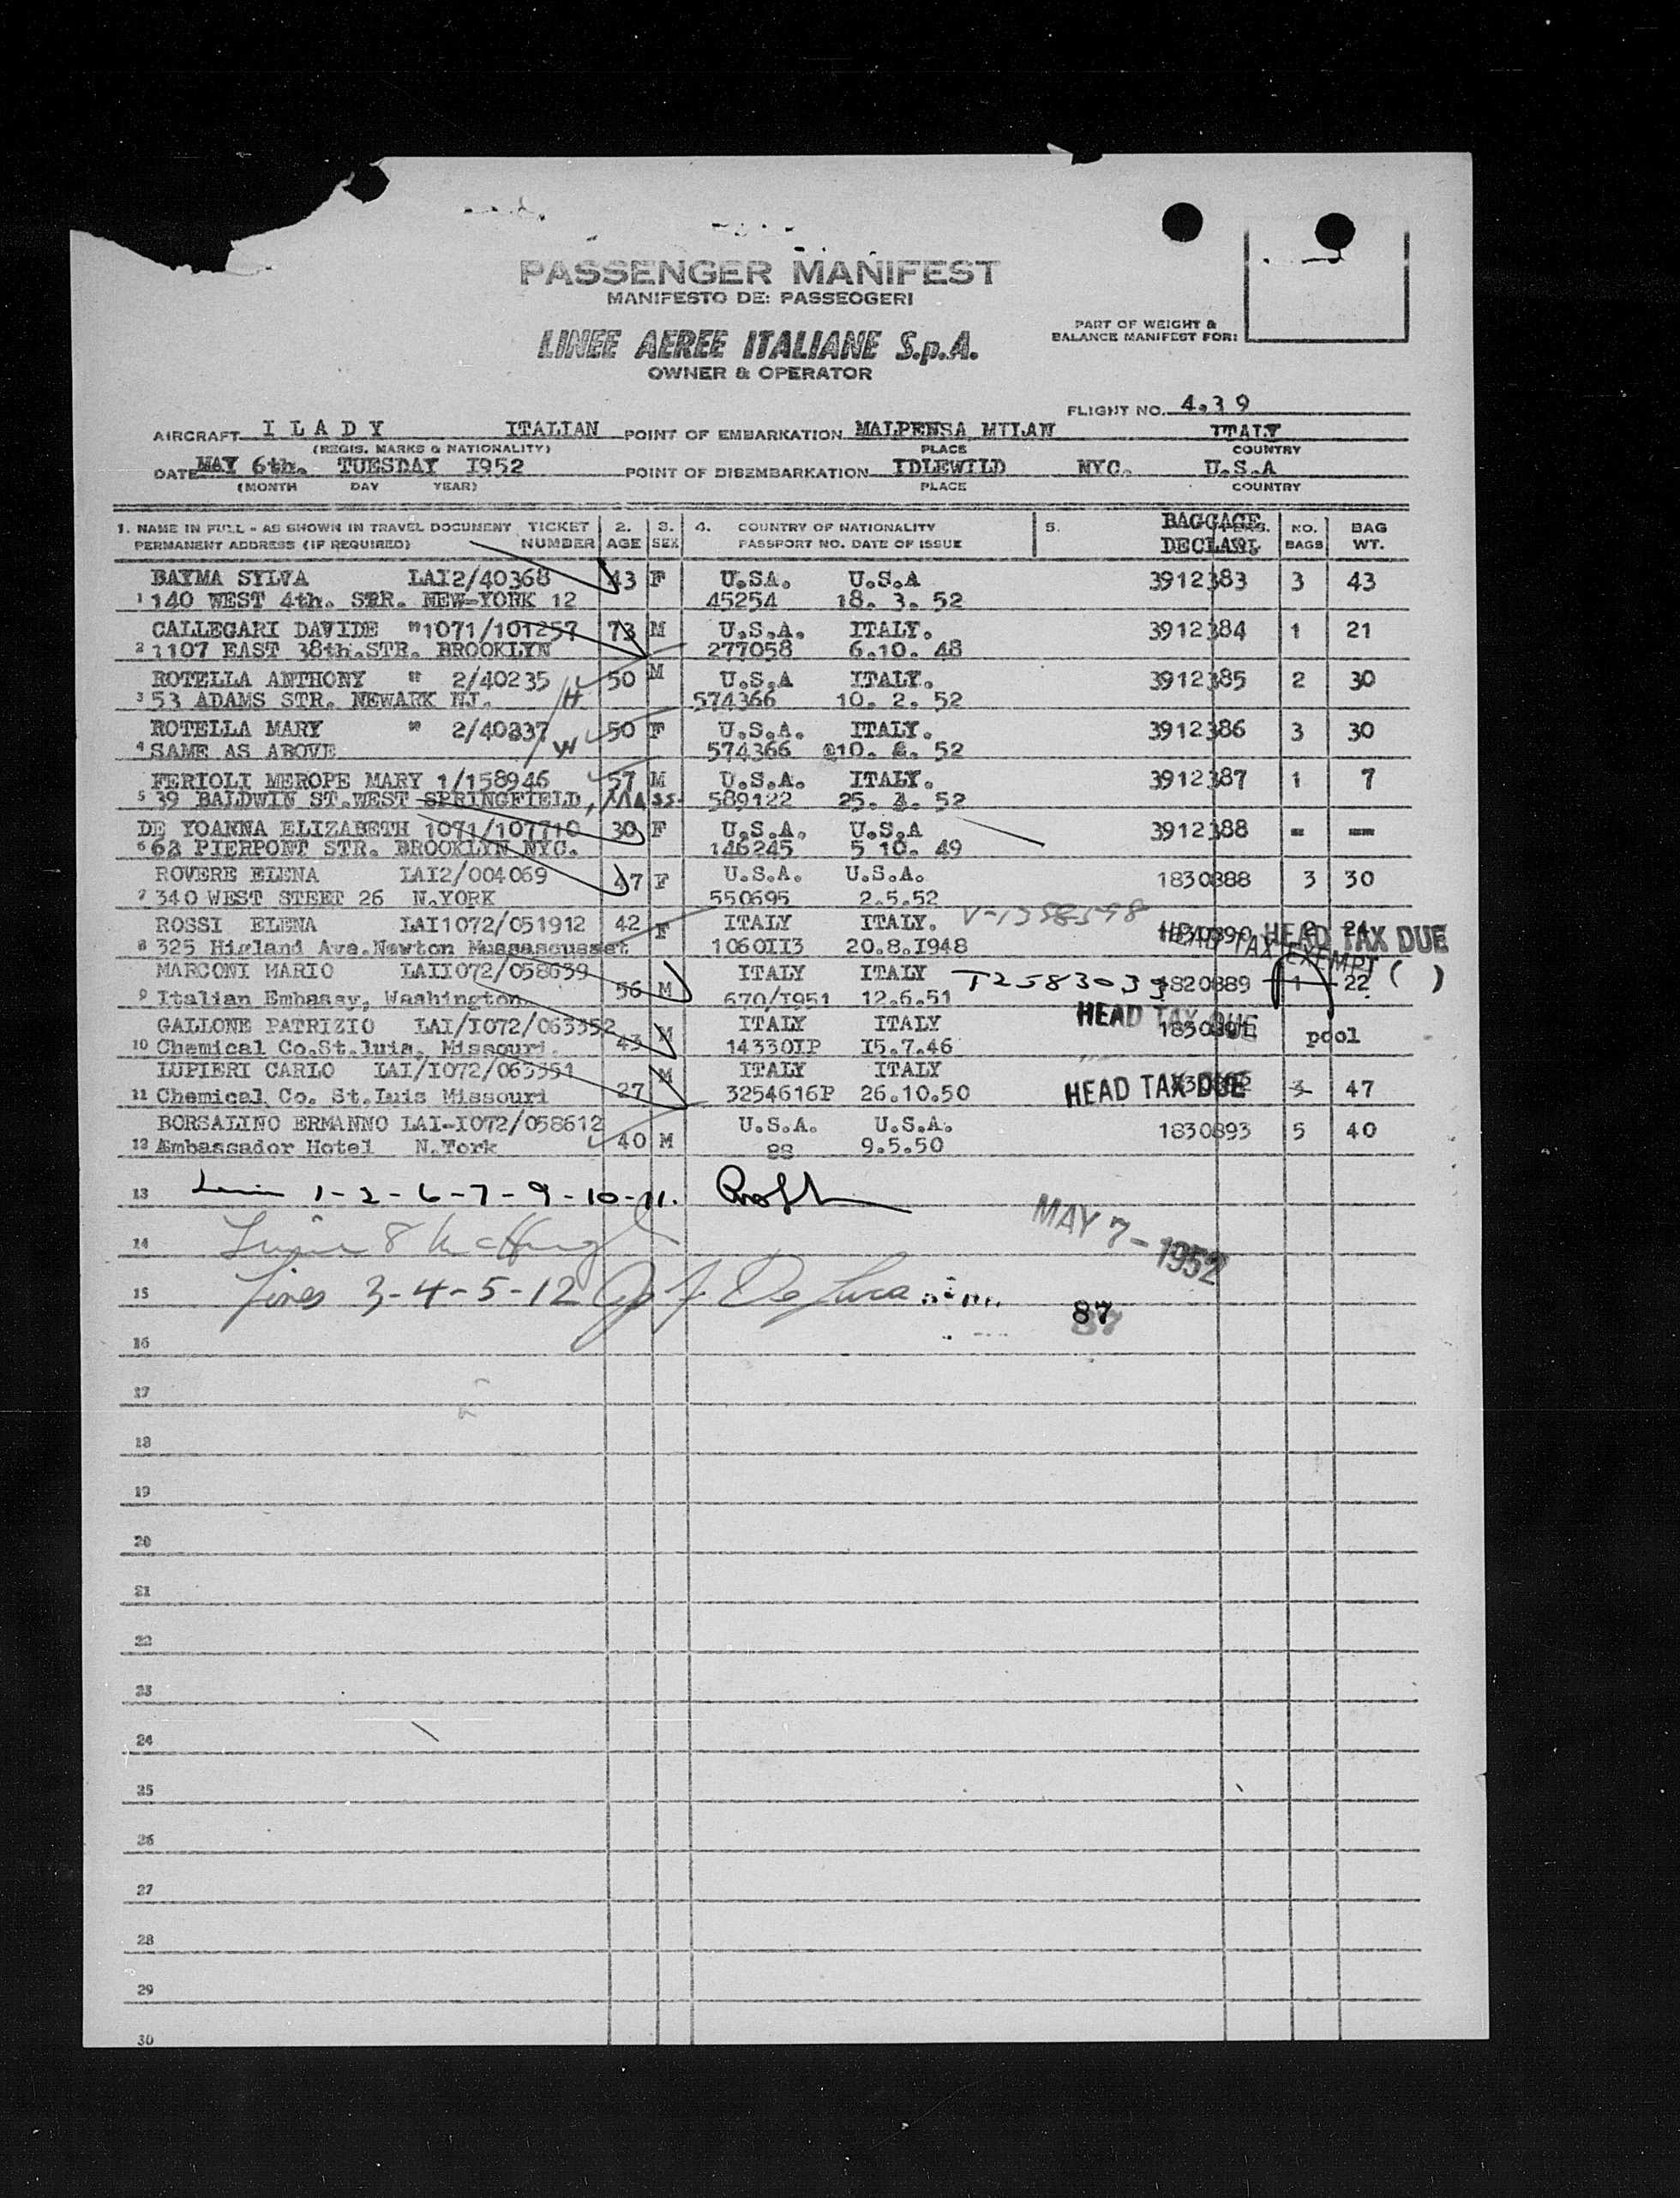 PASSENGER MANIFEST
MANIFESTO DE: PASSEOGERI
LINEE AEREE ITALIANE S.p.A.
OWNER & OPERATOR
PART OF WEIGHT &
BALANCE MANIFEST FOR:
FLIGHT NO. 4.39
AIRCRAFT I L A D Y ITALIAN POINT OF EMBARKATION MALPENSA MILAN ITALY
(REGIS. MARKS & NATIONALITY) PLACE COUNTRY
DATE MAY 6th. TUESDAY I952 POINT OF DISEMBARKATION IDLEWILD NYC. U.S.A
(MONTH DAY YEAR) PLACE COUNTRY
1. NAME IN FULL - AS SHOWN IN TRAVEL DOCUMENT TICKET 2. 3. 4. COUNTRY OF NATIONALITY 5. BAGGAGE NO. BAG
PERMANENT ADDRESS (IF REQUIRED) NUMBER AGE SEX PASSPORT NO. DATE OF ISSUE DECLAR. BAGS WT.
BAYMA SYLVA LAI2/40368 43 F U.SA. U.S.A 3912383 3 43
1 140 WEST 4th. STR. NEW-YORK 12 45254 18. 3. 52
CALLEGARI DAVIDE "1071/101257 73 M U.S.A. ITALY. 3912384 1 21
2 1107 EAST 38th.STR. BROOKLYN 277058 6.10. 48
ROTELLA ANTHONY " 2/40235 50 M U.S.A ITALY. 3912385 2 30
3 53 ADAMS STR. NEWARK NJ. H 574366 10. 2. 52
ROTELLA MARY " 2/40237 50 F U.S.A. ITALY. 3912386 3 30
4 SAME AS ABOVE W 574366 10. 2. 52
FERIOLI MEROPE MARY 1/158946 57 M U.S.A. ITALY. 3912387 1 7
5 39 BALDWIN ST.WEST SPRINGFIELD, MASS- 589122 25. 3. 52
DE YOANNA ELIZABETH 1071/107710 30 F U.S.A. U.S.A 3912388 - --
6 62 PIERPONT STR. BROOKLYN NYC. 146245 5 10. 49
ROVERE ELENA LAI2/004069 47 F U.S.A. U.S.A. 1830888 3 30
7 340 WEST STEET 26 N.YORK 550695 2.5.52
ROSSI ELENA LAI1072/051912 42 F ITALY ITALY. V-1358598 2 24 HEAD TAX DUE
8 325 Higland Ave.Newton Mussascusset 1060II3 20.8.I948 HEAD TAX EXEMPT ( )
MARCONI MARIO LAII072/058639 56 M ITALY ITALY T2583033 1820889 1 22
9 Italian Embassy, Washington 670/I951 12.6.51 HEAD TAX DUE
GALLONE PATRIZIO LAI/I072/063352 43 M ITALY ITALY pool
10 Chemical Co.St.luis, Missouri. 14330IP I5.7.46
LUPIERI CARLO LAI/I072/063351 27 M ITALY ITALY HEAD TAX DUE 3 47
11 Chemical Co. St.Luis Missouri 3254616P 26.10.50
BORSALINO ERMANNO LAI-I072/058612 40 M U.S.A. U.S.A. 1830893 5 40
12 Ambassador Hotel N.York 88 9.5.50
13 1-2-6-7-9-10-11.
MAY 7-1952
14
15 Lines 3-4-5-12 De Luca
87
16
17
18
19
20
21
22
23
24
25
26
27
28
29
30